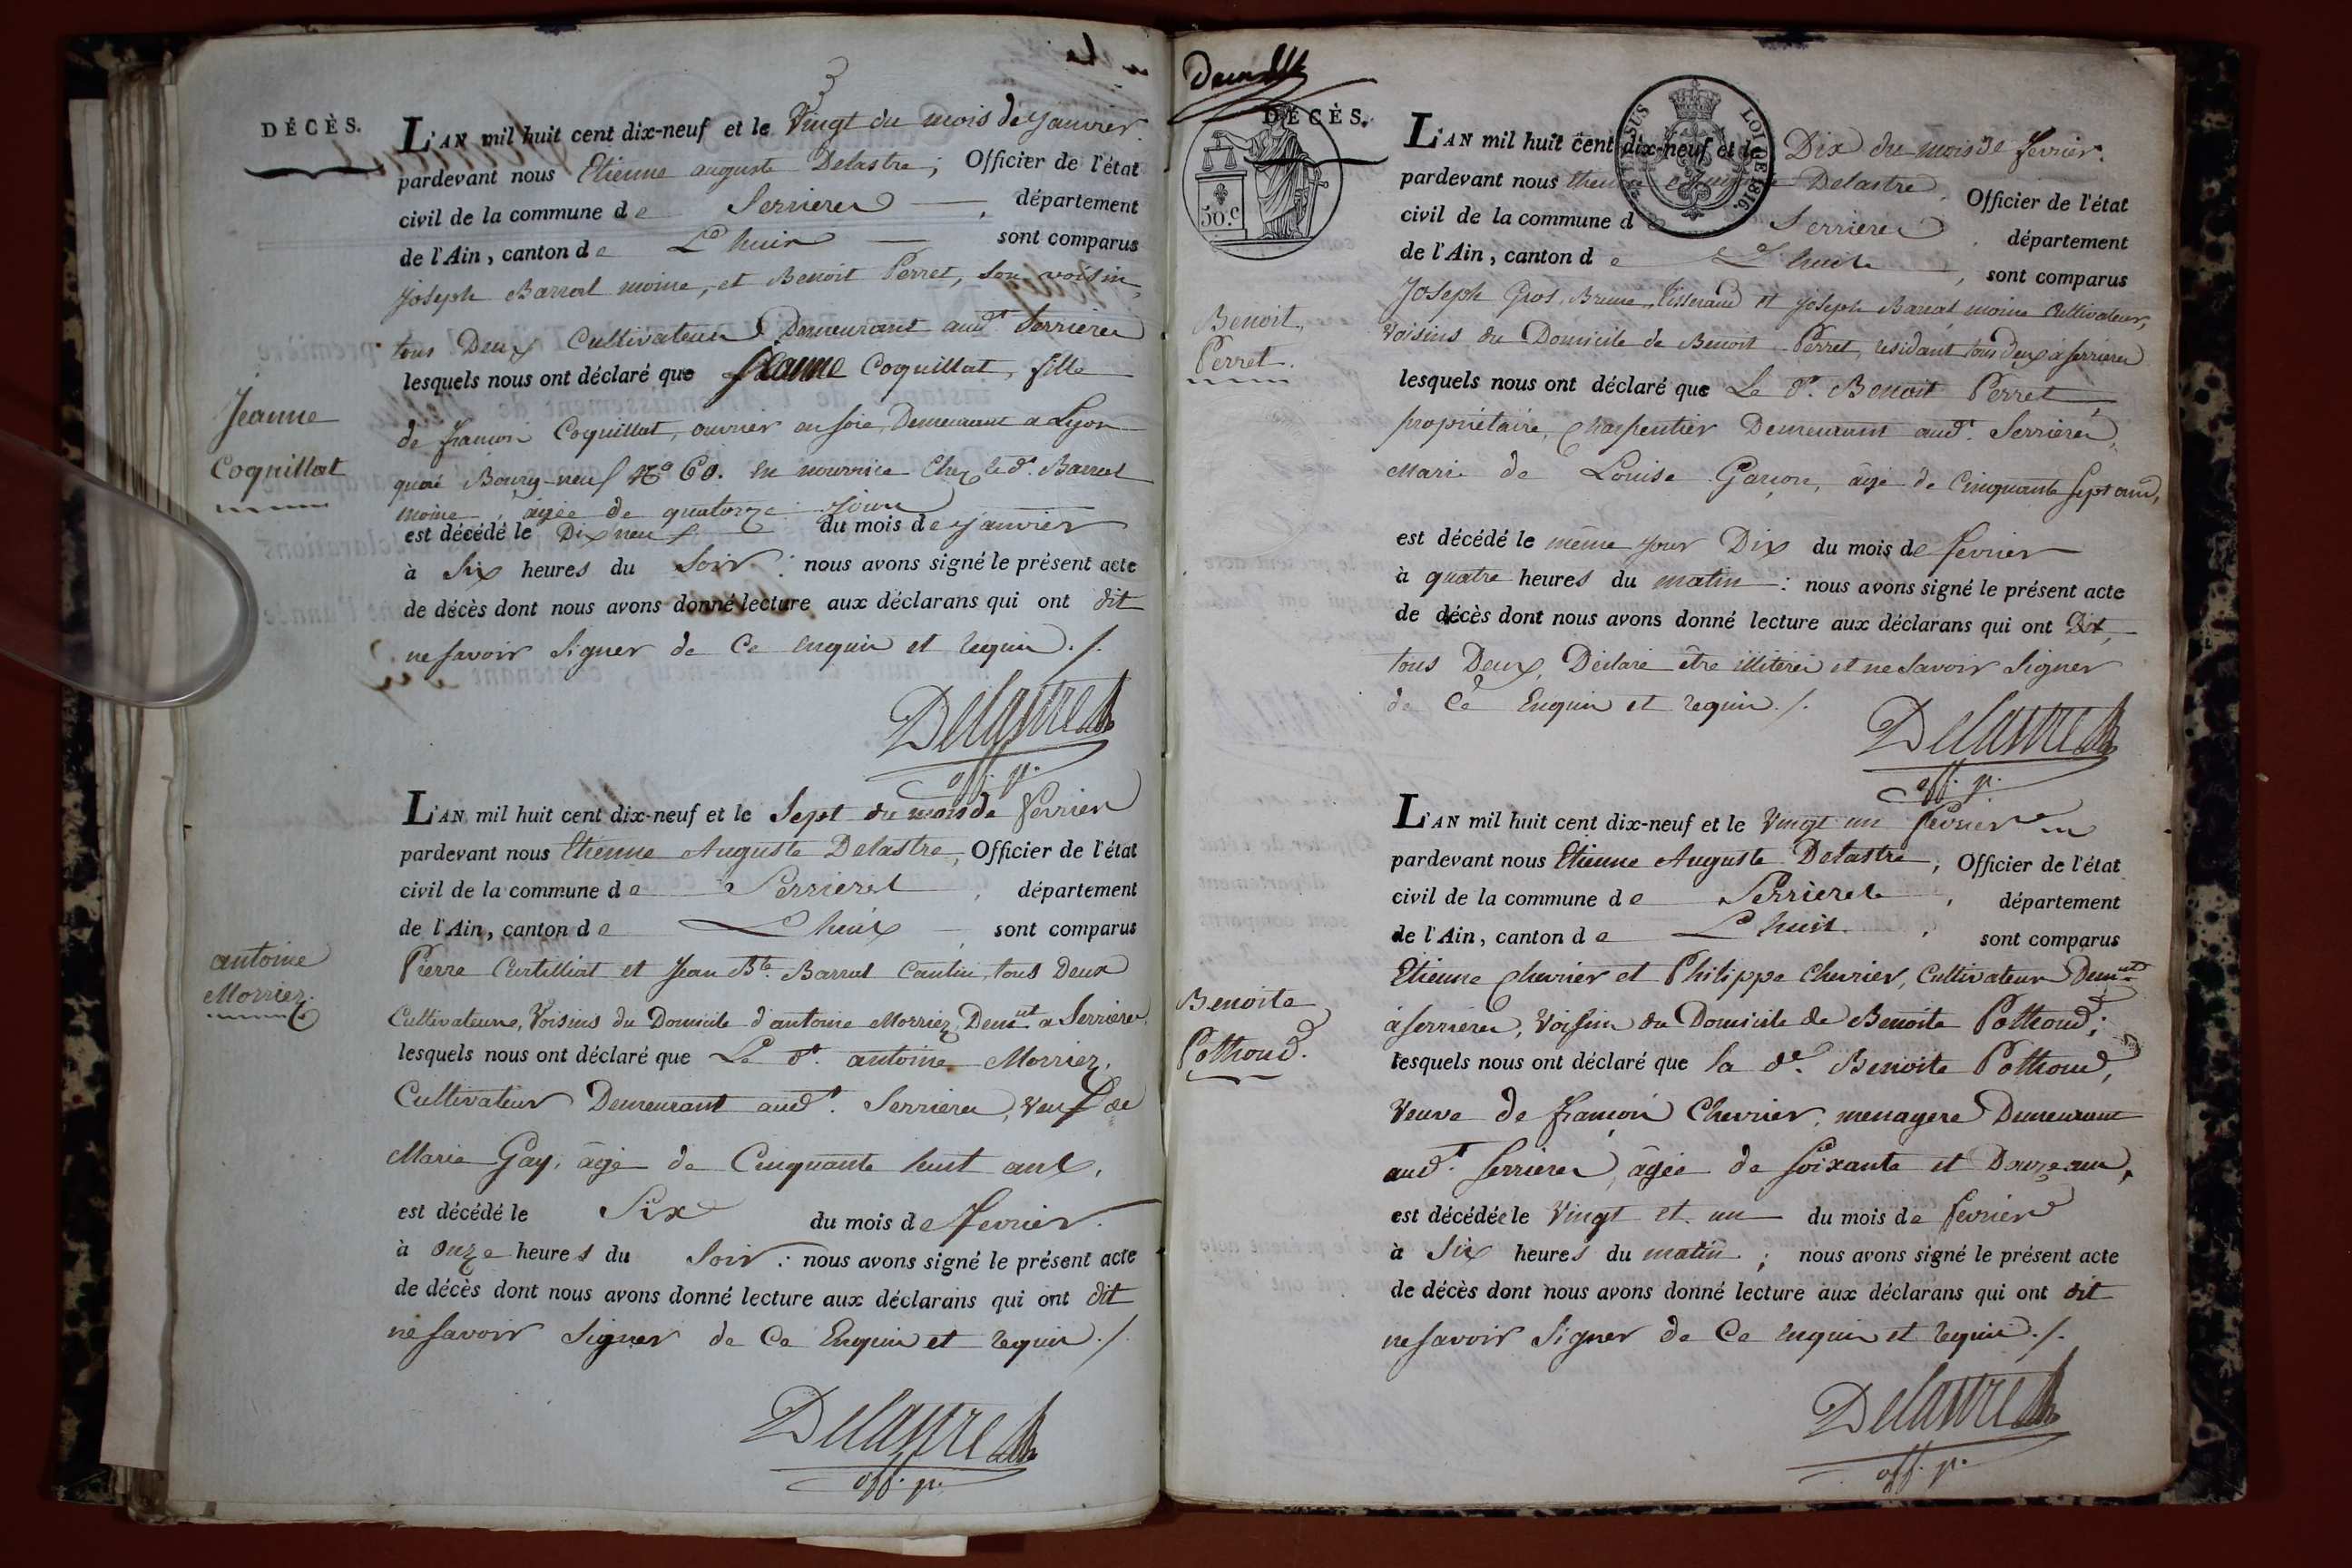 DÉCÈS.
L'AN mil huit cent dix-neuf et le Vingt du mois de janvier
pardevant nous Etienne auguste Delastre, Officier de l'état
civil de la commune de Serrieres, département
de l'Ain, canton de Lhuis sont comparus
Joseph Barral moine, et Benoit Perret, son voisin,
tous Deux Cultivateurs Demeurant aud.t Serrieres
lesquels nous ont déclaré que Jeanne Coquillat, fille
Jeanne
Coquillat
de françois Coquillat, ouvrier en soie, Demeurant a Lyon
quai Bourg-neuf N.o 60. en nourrice Chez led.t Barral
moine, agée de quatorze jours
est décédé le Dix neuf du mois de janvier
à Six heures du Soir : nous avons signé le présent acte
de décès dont nous avons donné lecture aux déclarans qui ont dit
ne savoir signer de Ce enquis et requis ./.
Delastre
off. p.
L'AN mil huit cent dix-neuf et le Sept du mois de fevrier
pardevant nous Etienne Auguste Delastre, Officier de l'état
civil de la commune de Serrieres, département
de l'Ain, canton de Lhuis, sont comparus
antoine
Morriez.
Pierre Curtilliat et Jean B.te Barral Cantin, tous Deux
Cultivateurs, Voisins du Domicile d'antoine Morriez, Dem.nt a Serrieres,
lesquels nous ont déclaré que Le d.t antoine Morriez,
Cultivateur Demeurant aud.t Serrieres, veuf de
Marie Gay, âgé de Cinquante huit ans,
est décédé le Six du mois de fevrier.
à onze heures du Soir : nous avons signé le présent acte
de décès dont nous avons donné lecture aux déclarans qui ont dit
ne savoir signer de Ce Enquis et requis ./.
Delastre
off. p.
DÉCÈS.
50.c
LOI DE 1816.
L'AN mil huit cent dix-neuf et le Dix du mois de fevrier.
pardevant nous Delastre, Officier de l'état
civil de la commune de Serrieres, département
de l'Ain, canton de Lhuis, sont comparus
Benoit
Perret.
Joseph Gros, Brune, tisserand et joseph Barral moine Cultivateur,
Voisins du Domicile de Benoit Perret, residant tous deux à serrieres
lesquels nous ont déclaré que Le d.t Benoit Perret,
propriétaire, Charpentier Demeurant aud.t Serrieres,
Mari de Louise Garçon, âgé de Cinquante sept ans,
est décédé le même jour Dix du mois de fevrier
à quatre heures du matin : nous avons signé le présent acte
de décès dont nous avons donné lecture aux déclarans qui ont Dit,
tous Deux, Déclaré être illiterés et ne savoir signer
de Ce Enquis et requis ./.
Delastre
off. p.
L'AN mil huit cent dix-neuf et le Vingt un fevrier
pardevant nous Etienne Auguste Delastre, Officier de l'état
civil de la commune de Serrieres, département
de l'Ain, canton de Lhuis, sont comparus
Benoite
Pothoud.
Etienne Chevrier et Philippe Chevrier, Cultivateurs Dem.nt
à serrieres, Voisins du Domicile de Benoite Pothoud;
lesquels nous ont déclaré que la d.e Benoite Pothoud,
Veuve de françois Chevrier, menagere Demeurant
aud.t serrieres, âgée de soixante et Douze ans,
est décédée le Vingt et un du mois de fevrier
à Six heures du matin ; nous avons signé le présent acte
de décès dont nous avons donné lecture aux déclarans qui ont dit
ne savoir signer de Ce enquis et requis ./.
Delastre
off. p.